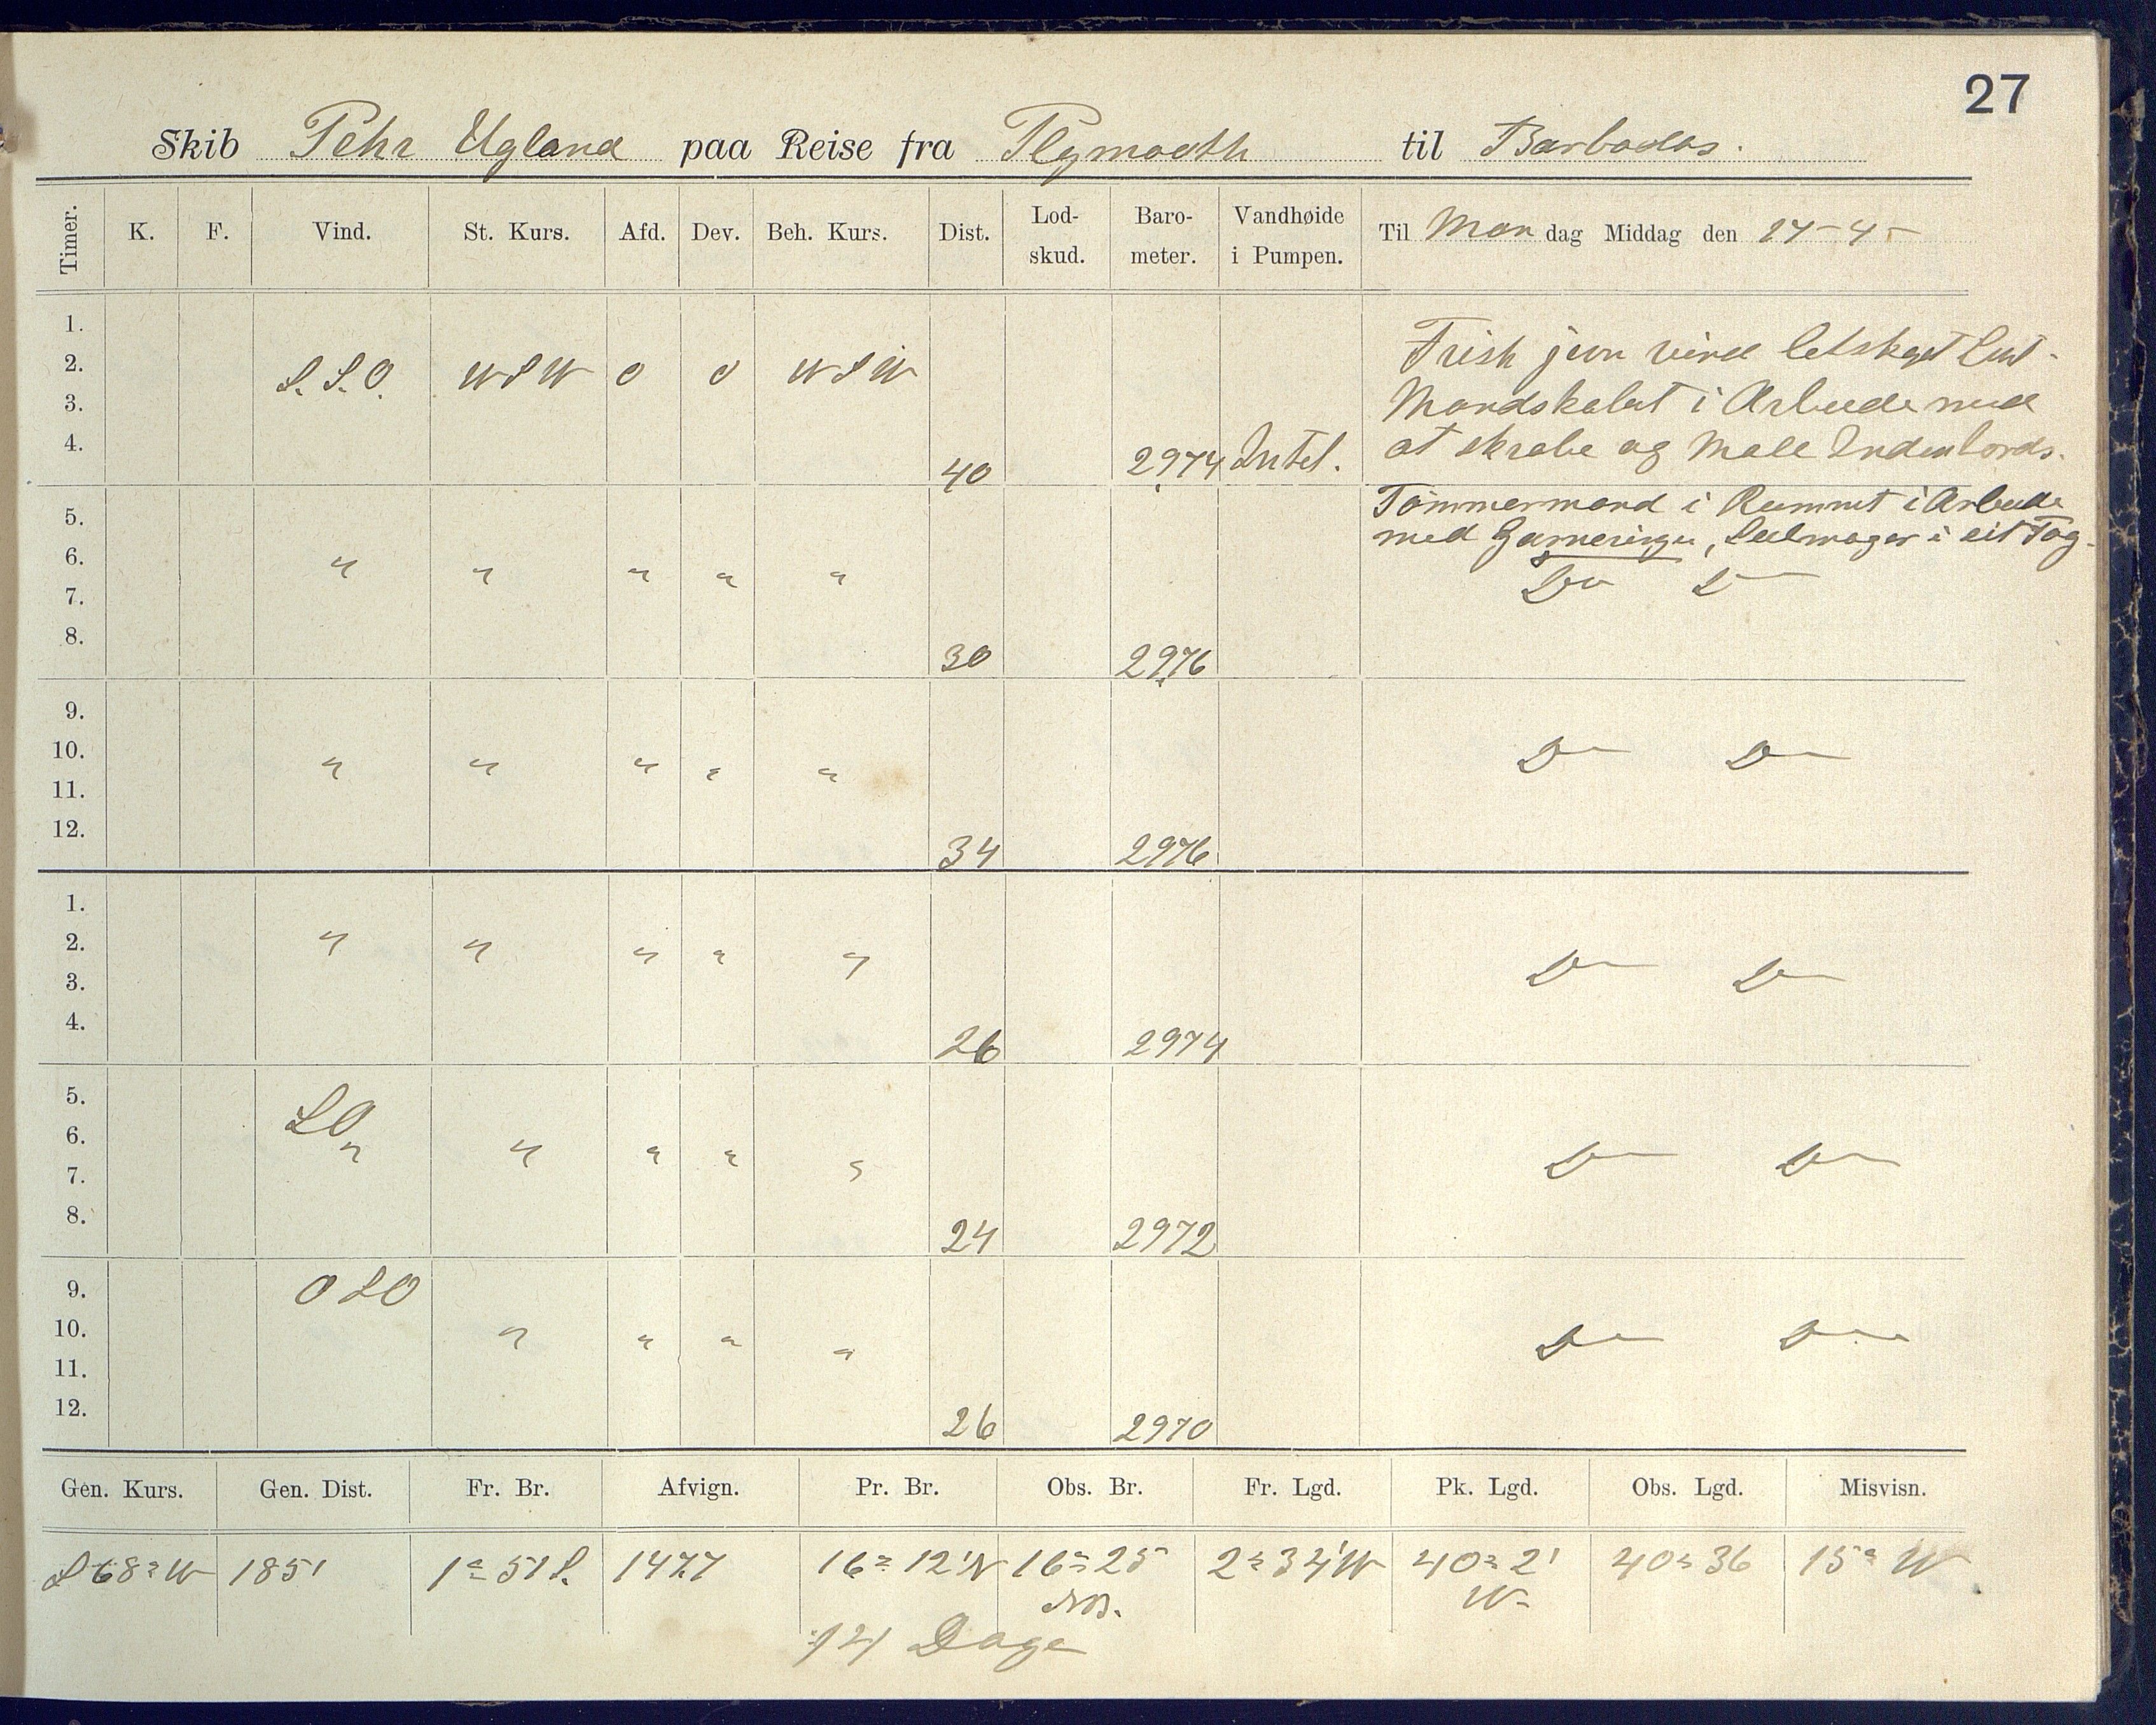 27
Skib Pehr Ugland paa Reise fra Plymouth til Barbados.
Timer. K. F. Vind. St. Kurs. Afd. Dev. Beh. Kurs. Dist. Lod-skud. Baro-meter. Vandhøide i Pumpen. Til Man dag Middag den 24-4-
1.
2. S.S.O. WSW 0 0 WSW
3.
4. 40 2974 Intet.
Frisk jevn vind letskyet Luft.
Mandskabet i Arbeide med
at skrabe og Male Indenbords.
Tømmermand i Rummet i Arbeide
med Garneringen, Seilmager i eit Tog.
5.
6. " " " " " Do Do
7.
8. 30 2976
9.
10. " " " " " Do Do
11.
12. 34 2976
1.
2. " " " " " Do Do
3.
4. 26 2974
5. SO
6. " " " " " Do Do
7.
8. 24 2972
9. OSO
10. " " " " Do Do
11.
12. 26 2970
Gen. Kurs. Gen. Dist. Fr. Br. Afvign. Pr. Br. Obs. Br. Fr. Lgd. Pk. Lgd. Obs. Lgd. Misvisn.
S 68° W 185' 1° 51 S. 147.7 16° 12' N 16° 25 2° 34' W 40° 2' W 40° 36 15° W
14 Dage